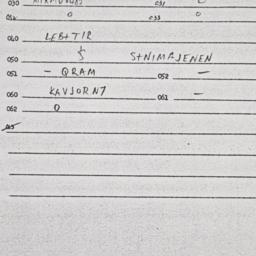 030 031
032 0 033 0
040 LEB+TIR
050 { S+NIMAJENEN
051 – QRAM 052 –
060 KAVJORN7 061 –
062 0